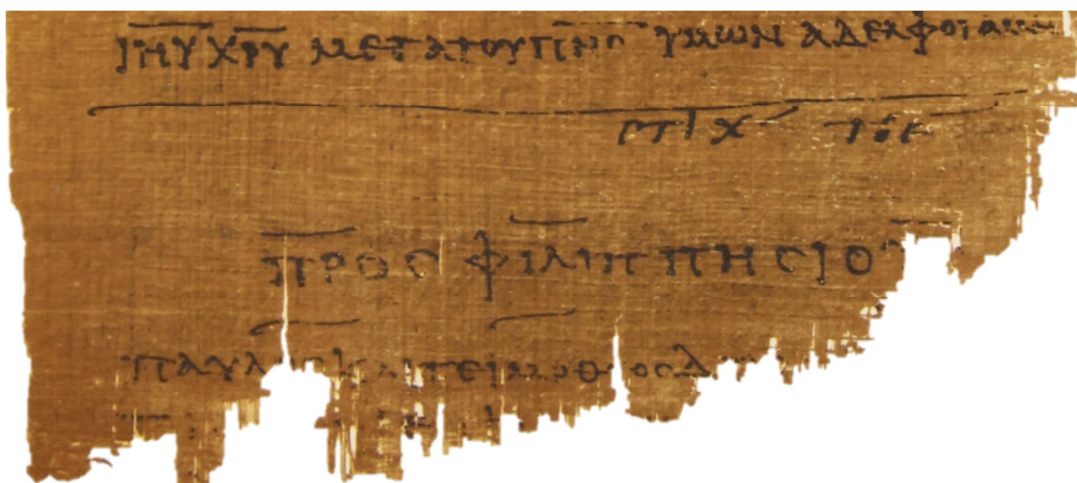 ΙΗΥ ΧΡΥ ΜΕΤΑ ΤΟΥ ΠΝϹ ΥΜΩΝ ΑΔΕΛΦΟΙ ΑΜΗΝ
ϹΤΙΧ ΤΟΕ
ΠΡΟϹ ΦΙΛΙΠΠΗϹΙΟ
ΠΑΥΛ ΚΑΙ ΤΕΙΜΟΘΕΟϹ Δ